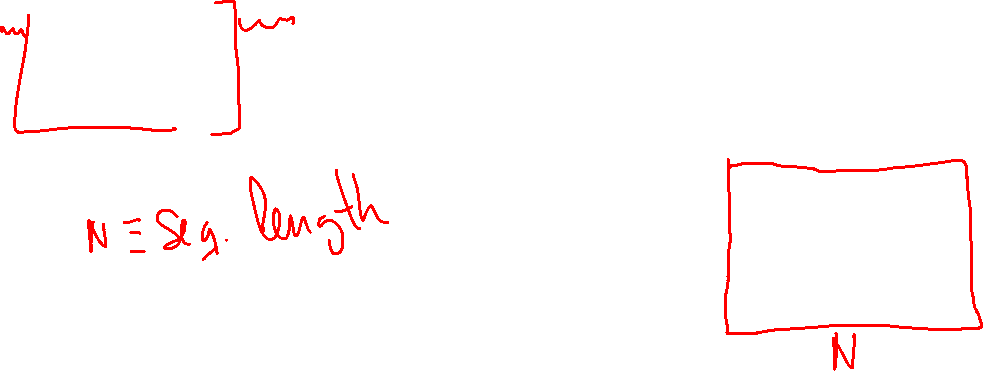 N ≡ Seq. length
N